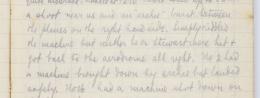 a shoot near us and an "archie" burst between
the planes on the right hand side. Simply riddled
the machine but neither he or Stewart were hit &
got back to the aerodrome all right. No 2 had
a machine brought down by archie but landed
safely. Had a machine shot down on